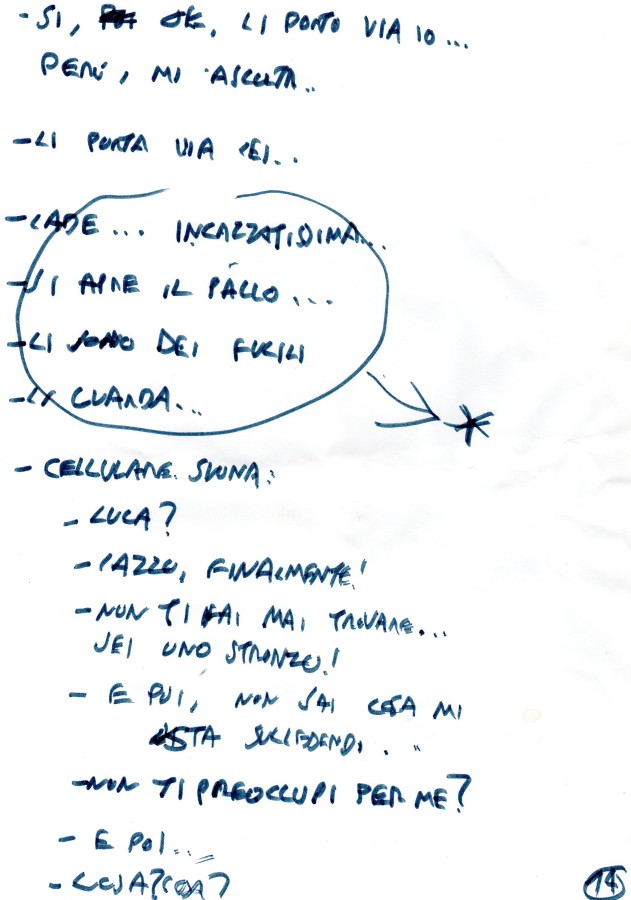 - SI, OK, LI PORTO VIA IO...
PERÒ, MI ASCOLTA..
- LI PORTA VIA LEI...
- CADE... INCAZZATISSIMA...
- SI APRE IL PACCO...
- CI SONO DEI FUCILI
- LI GUARDA...
- CELLULARE SUONA:
- LUCA?
- CAZZO, FINALMENTE!
- NON TI FAI MAI TROVARE...
SEI UNO STRONZO!
- E POI, NON SAI COSA MI
STA SUCCEDENDO...
- NON TI PREOCCUPI PER ME?
- E POI...
- COSA? COSA?
14